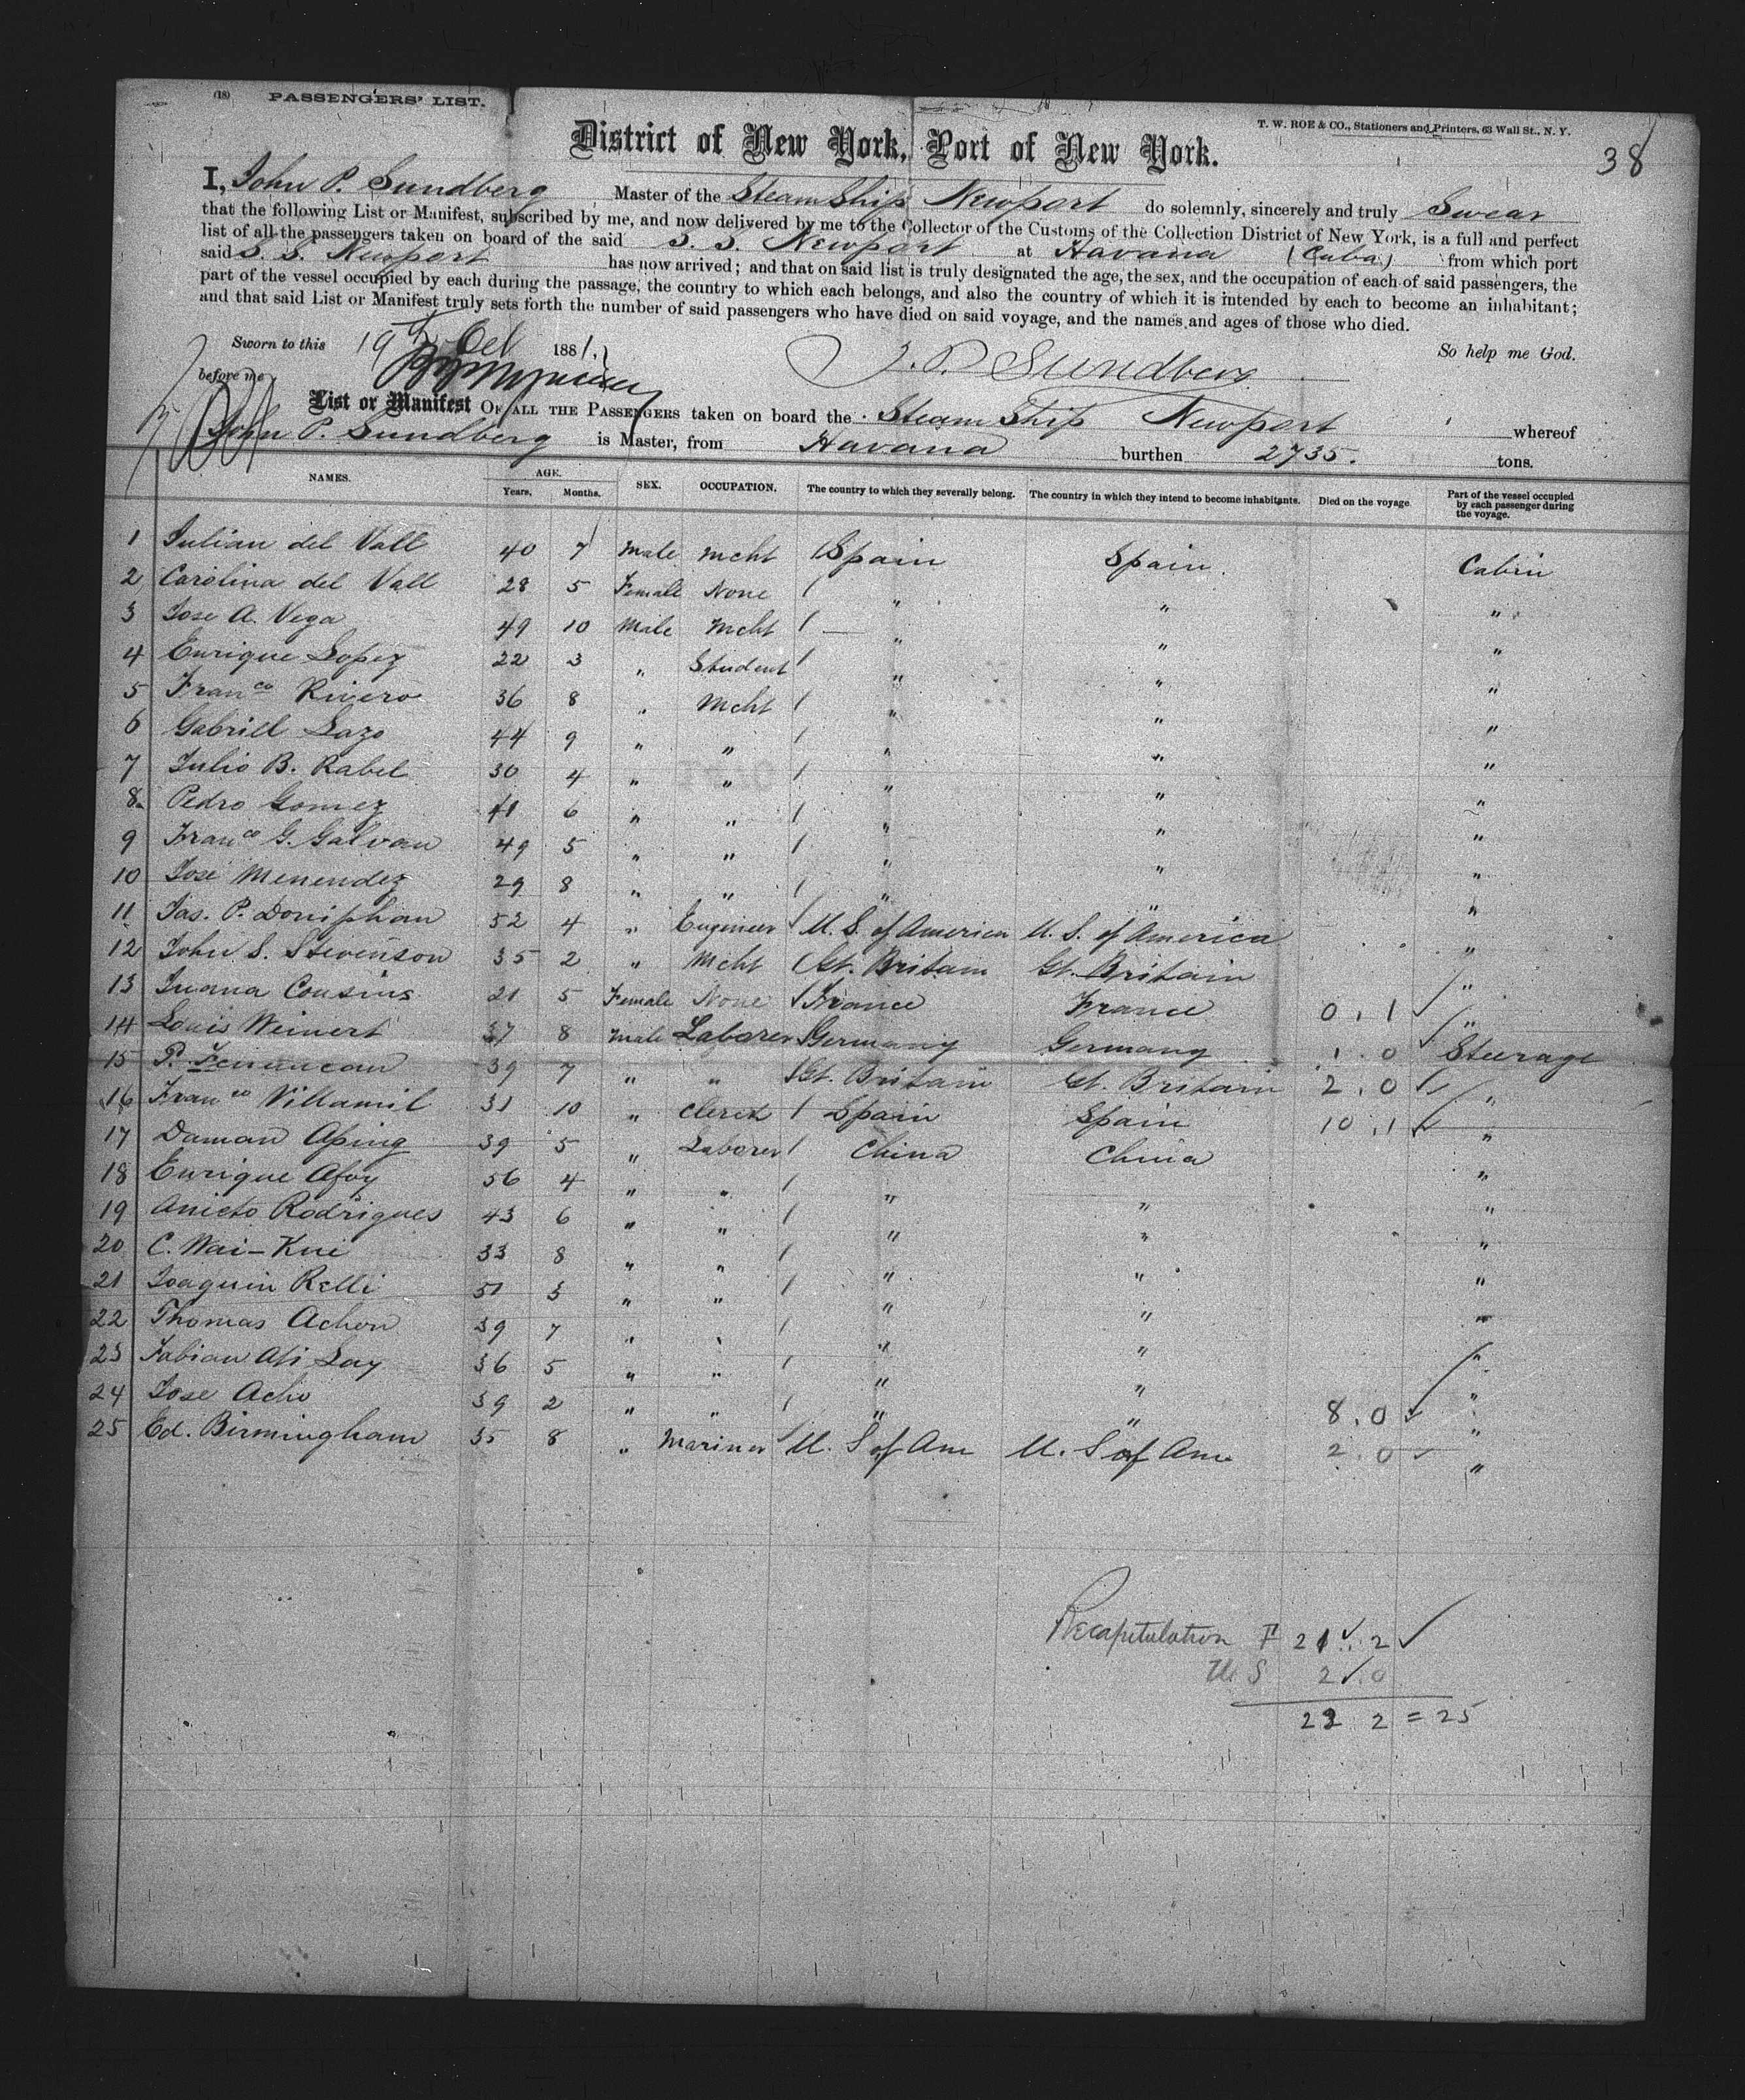 (18) PASSENGERS' LIST.
T. W. ROE & CO., Stationers and Printers, 63 Wall St., N. Y.
38
District of New York, Port of New York.
I, John P. Sundberg, Master of the SteamShip Newport do solemnly, sincerely and truly Swear
that the following List or Manifest, subscribed by me, and now delivered by me to the Collector of the Customs of the Collection District of New York, is a full and perfect
list of all the passengers taken on board of the said S. S. Newport at Havana (Cuba) from which port
said S. S. Newport has now arrived; and that on said list is truly designated the age, the sex, and the occupation of each of said passengers, the
part of the vessel occupied by each during the passage, the country to which each belongs, and also the country of which it is intended by each to become an inhabitant;
and that said List or Manifest truly sets forth the number of said passengers who have died on said voyage, and the names and ages of those who died.
So help me God.
Sworn to this 19th Oct 1881,
before me
J. P. Sundberg
List or Manifest OF ALL THE PASSENGERS taken on board the Steam Ship Newport whereof
John P. Sundberg is Master, from Havana burthen 2735. tons.
NAMES. AGE. Years. Months. SEX. OCCUPATION. The country to which they severally belong. The country in which they intend to become inhabitants. Died on the voyage. Part of the vessel occupied by each passenger during the voyage.
1 Julian del Valle 40 7 Male Mcht Spain Spain Cabin
2 Carolina del Valle 28 5 Female None " " "
3 Jose A. Vega 49 10 Male Mcht " " "
4 Enrique Lopez 22 3 " Student " " "
5 Franco Rivero 36 8 " Mcht " " "
6 Gabriel Lazo 44 9 " " " " "
7 Julio B. Rabel 30 4 " " " " "
8 Pedro Gomez 41 6 " " " " "
9 Franco G. Galvan 49 5 " " " " "
10 José Menendez 29 8 " " " " "
11 Jas. P. Doniphan 52 4 " Engineer U. S. of America U. S. of America "
12 John S. Stevenson 35 2 " Mcht Gt. Britain Gt. Britain "
13 Juana Cousins 21 5 Female None France France 0.1 "
14 Louis Weinert 37 8 Male Laborer Germany Germany 1.0 Steerage
15 P. 39 7 " " Gt. Britain Gt. Britain 2.0 "
16 Franco Villamil 31 10 " Clerck Spain Spain 10.1 "
17 Daman Aping 39 5 " Laborer China China "
18 Enrique Afoy 56 4 " " " " "
19 Anicto Rodrigues 43 6 " " " " "
20 C. Wai-Kui 33 8 " " " " "
21 Joaquin Relli 51 3 " " " " "
22 Thomas Achon 39 7 " " " " "
23 Fabian Ati Lay 36 5 " " " " "
24 Jose Acho 39 2 " " " " 8.0 "
25 Ed. Birmingham 35 8 " Mariner U. S of Am U. S of Am 2.0 "
Recapitulation F 21 . 2
U S 2 . 0
23 2 = 25